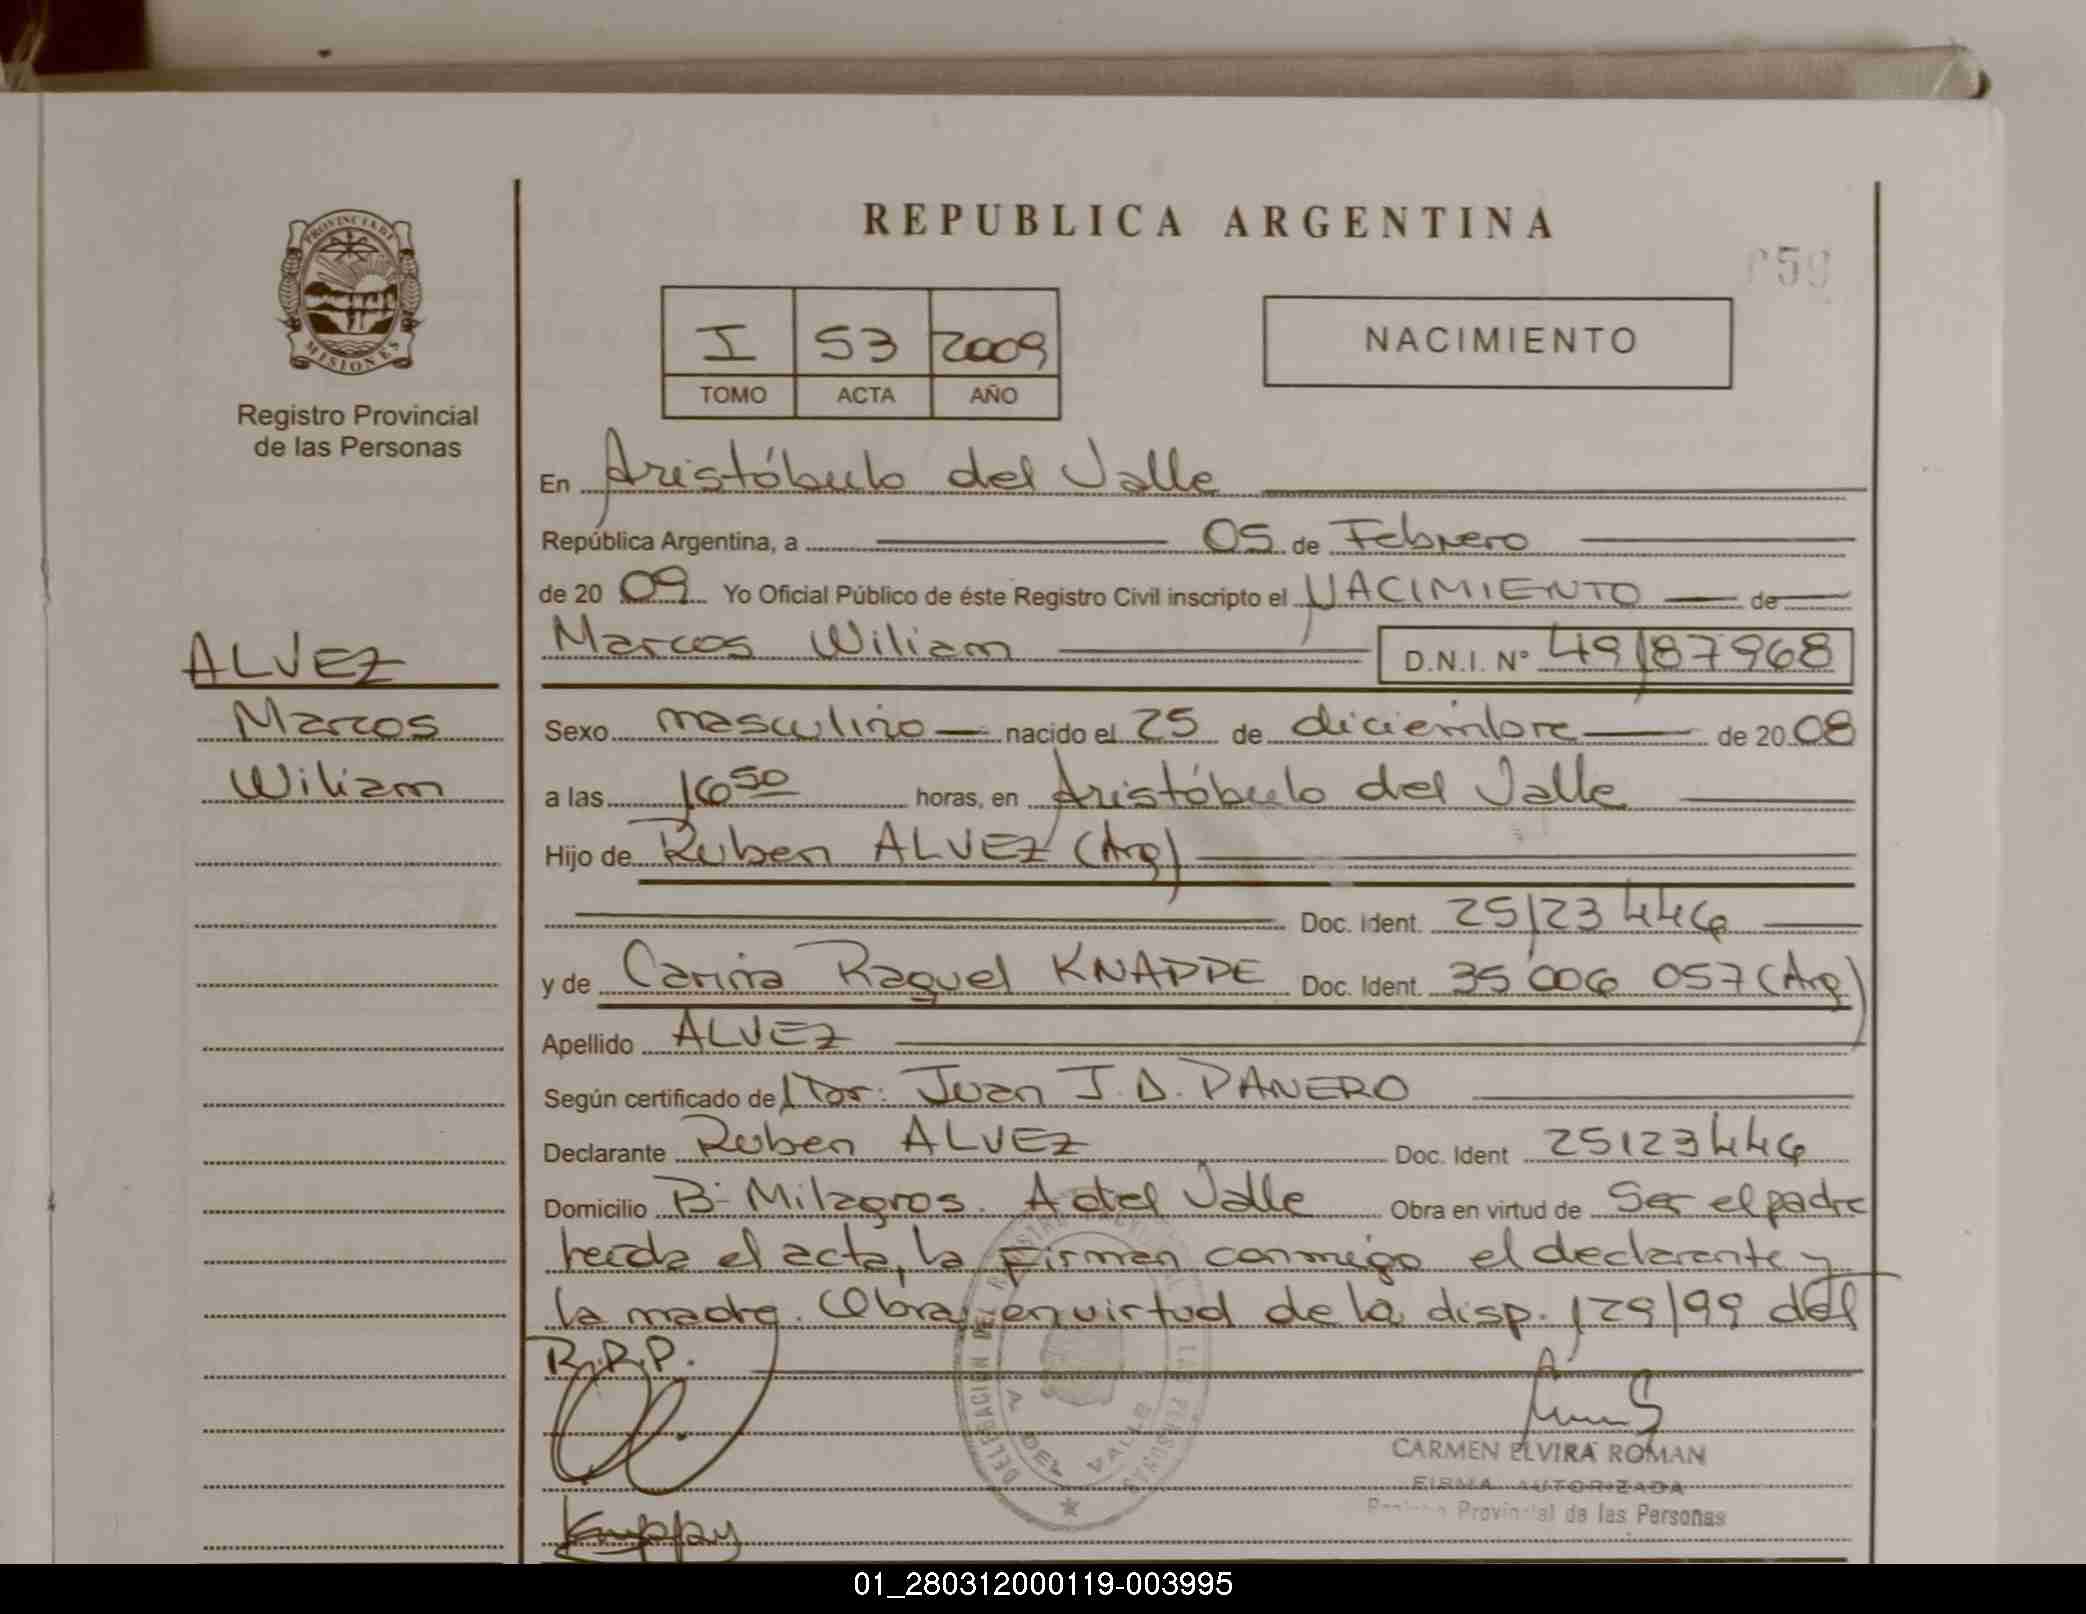 PROVINCIA DE
MISIONES
Registro Provincial
de las Personas
REPUBLICA ARGENTINA
I 53 2009
TOMO ACTA AÑO
NACIMIENTO
En Aristóbulo del Valle
República Argentina, a 05 de Febrero
de 20 09 Yo Oficial Público de éste Registro Civil inscripto el NACIMIENTO de
Marcos Wiliam D.N.I. Nº 49187968
ALVEZ
Marcos
Wiliam
Sexo masculino nacido el 25 de diciembre de 20 08
a las 16 50 horas, en Aristóbulo del Valle
Hijo de Ruben ALVEZ (Arg)
Doc. Ident. 25123446
y de Carina Raquel KNAPPE Doc. Ident. 35006057 (Arg)
Apellido ALVEZ
Según certificado de Dr: Juan J. D. PANERO
Declarante Ruben ALVEZ Doc. Ident 25123446
Domicilio Bº Milagros. A del Valle Obra en virtud de Ser el padre
leida el acta, la firman conmigo el declarante y
la madre. Obra en virtud de la disp. 129/99 del
R.P.P.
DELEGACION DEL REGISTRO PROVINCIAL DE LAS PERSONAS
A. DEL VALLE
CARMEN ELVIRA ROMAN
FIRMA AUTORIZADA
Registro Provincial de las Personas
01_280312000119-003995